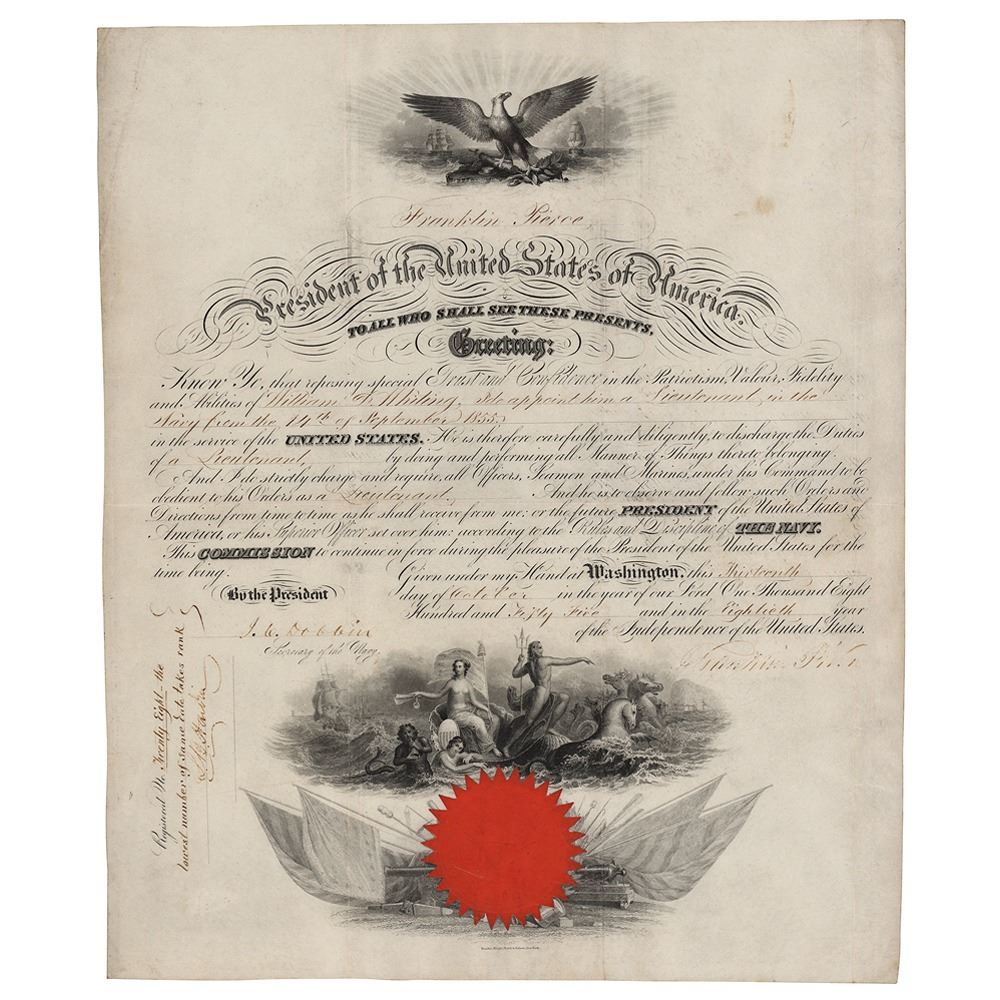 Franklin Pierce
President of the United States of America.
TO ALL WHO SHALL SEE THESE PRESENTS,
Greeting:
Know Ye, that reposing special Trust and Confidence in the Patriotism, Valour, Fidelity
and Abilities of William D. Whiting, I do appoint him a Lieutenant, in the
Navy from the 14th of September 1855
in the service of the UNITED STATES. He is therefore carefully and diligently, to discharge the Duties
of a Lieutenant, by doing and performing all Manner of Things thereto belonging.
And I do strictly charge and require, all Officers, Seamen and Marines, under his Command to be
obedient to his Orders as a Lieutenant. And he is to observe and follow such Orders and
Directions from time to time as he shall receive from me: or the future PRESIDENT of the United States of
America, or his Superior Officer set over him: according to the Rules and Discipline of THE NAVY.
This COMMISSION to continue in force during the pleasure of the President of the United States for the
time being. Given under my Hand at Washington, this Thirteenth
By the President day of October in the year of our Lord One Thousand Eight
Hundred and Fifty Five and in the Eightieth year
J. C. Dobbin of the Independence of the United States.
Secretary of the Navy. Franklin Pierce
Registered No. Twenty Eight the
lowest number of same date takes rank